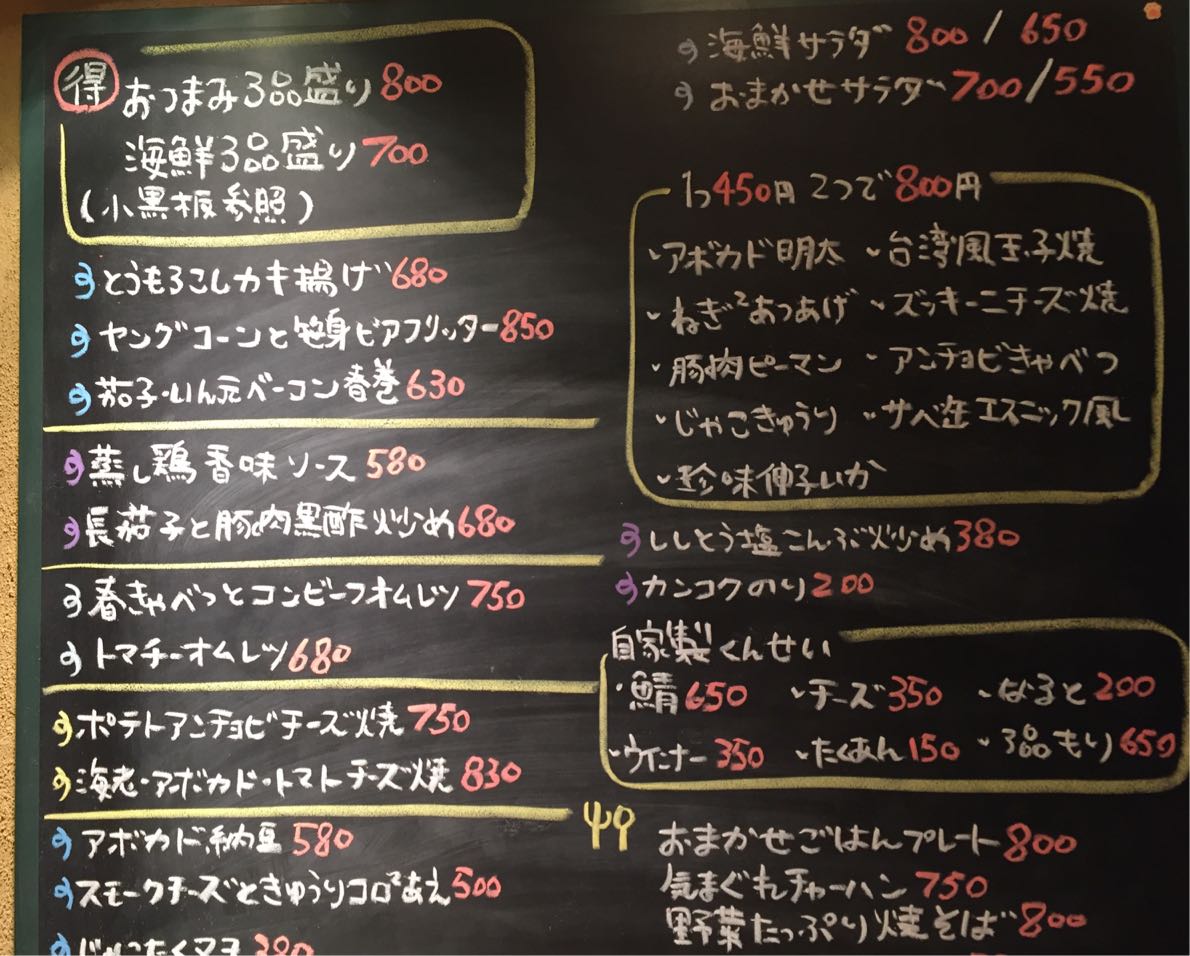 得 おつまみ3品盛り800
海鮮3品盛り700
(小黒板参照)
とうもろこしカキ揚げ680
ヤングコーンと笹身ビアフリッター850
茄子・いん元ベーコン春巻630
蒸し鶏香味ソース580
長茄子と豚肉黒酢炒め680
春きゃべつとコンビーフオムレツ750
トマチーオムレツ680
ポテトアンチョビチーズ焼750
海老・アボカド・トマトチーズ焼830
アボカド納豆580
スモークチーズときゅうりコロ²あえ500
海鮮サラダ 800/650
おまかせサラダ700/550
1つ450円 2つで800円
・アボカド明太 ・台湾風玉子焼
・ねぎ²あつあげ ・ズッキーニチーズ焼
・豚肉ピーマン ・アンチョビきゃべつ
・じゃこきゅうり ・サバ缶エスニック風
・珍味伸子いか
ししとう塩こんぶ炒め380
カンコクのり200
自家製くんせい
・鯖650 ・チーズ350 ・なると200
・ウインナー350 ・たくあん150 ・3品もり650
おまかせごはんプレート800
気まぐれチャーハン750
野菜たっぷり焼そば800